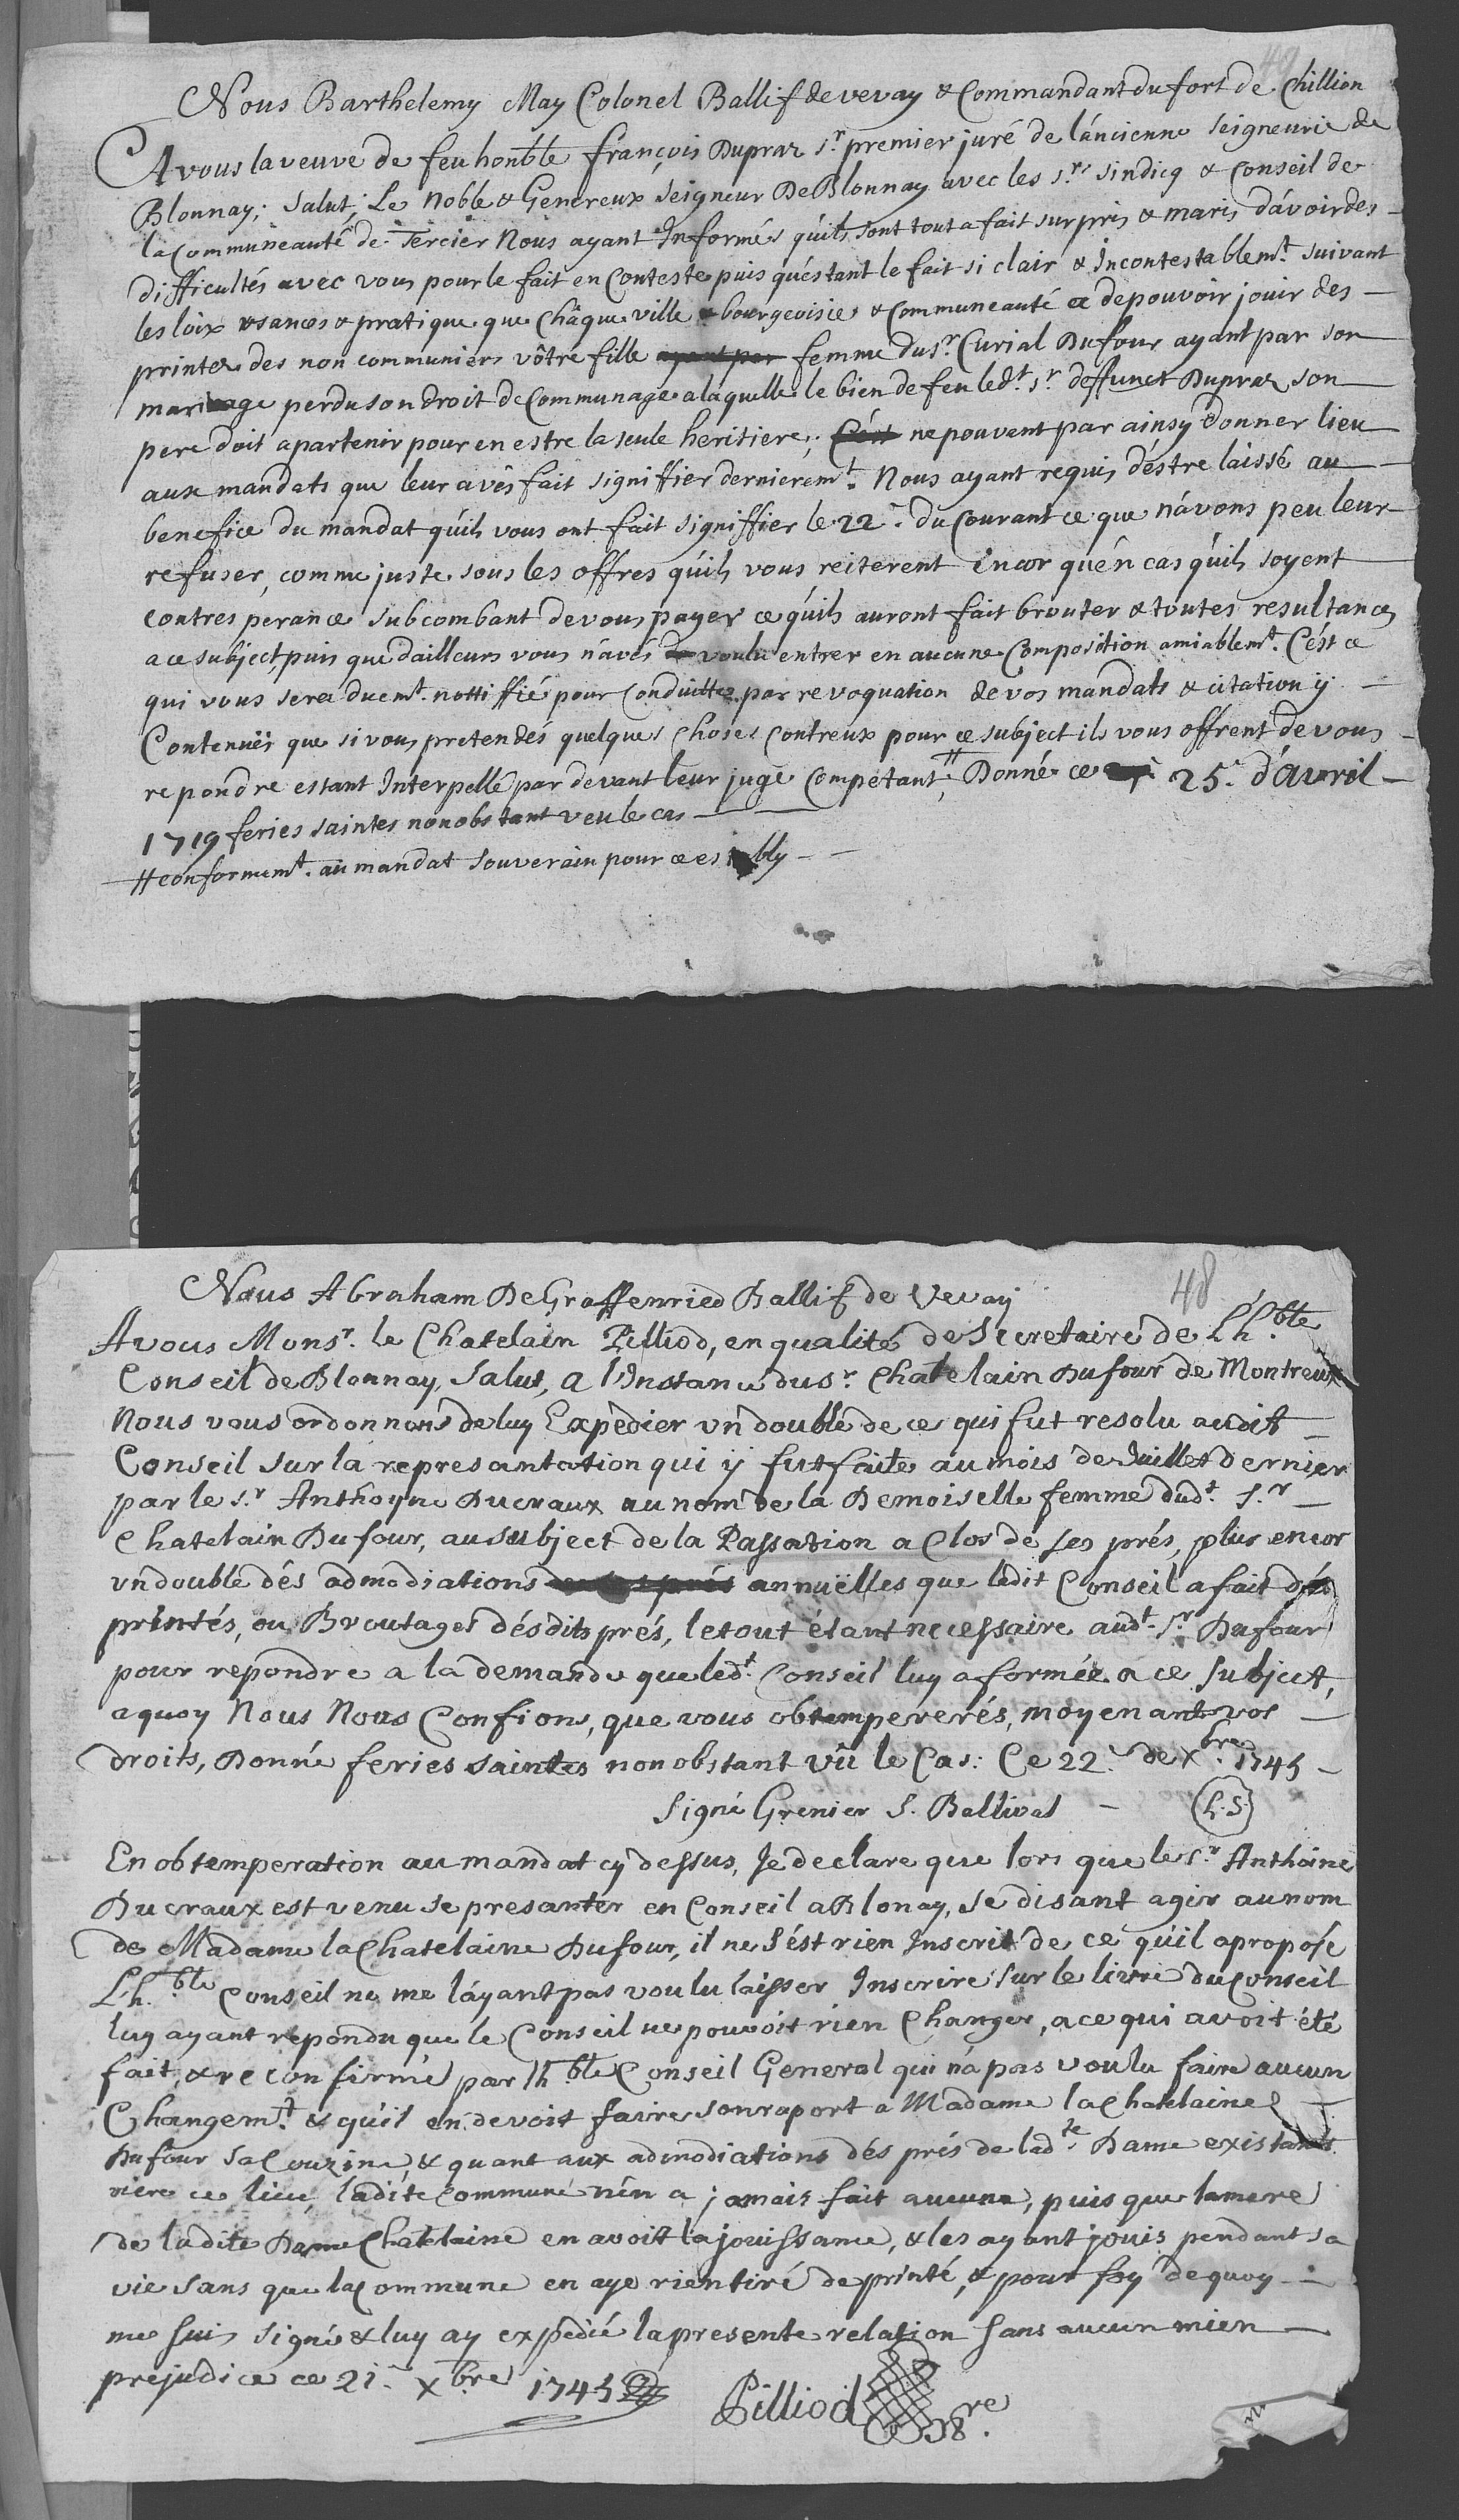 49
Nous Barthelemy May Colonel Ballif de vevay & Commandant du fort de Chillion
A vous la veuve de feu honble. françois Dupraz sr. premier juré de láncienne seigneurie de
Blonnay; salut, Le Noble & Genereux seigneur De Blonnay avec les srs. sindicq & Conseil de
la communeauté de Tercier Nous ayant Informés quíls sont tout a fait surpris & maris dávoir des
difficultés avec vous pour le fait en Conteste puis quéstant le fait si clair & Incontestablemt. suivant
les loix usances & pratique que Châque ville & bourgeoisie & Communeauté a de pouvoir jouir des
printez des non communiers vôtre fille ayant par femme du sr. Curial Dufour ayant par son
mariage perdu son droit de Communage a laquelle le bien de feu ledt. sr. deffunct Dupraz son
pere doit apartenir pour en estre la seule heritiere; Cést ne pouvent par ainsy donner lieu
aux mandats que leur avés fait signiffier dernieremt. Nous ayant requis déstre laissé au
benefice du mandat quíls vous ont fait signiffier le 22e. du Courant ce que návons peu leur
refuser, comme juste sous les offres quíls vous reiterent Encor quén cas quíls soyent
contres perance subcombant de vous payer ce quíls auront fait brouter & toutes resultances
a ce subject, puis que dailleurs vous návés voulu entrer en aucune Composition amiablemt. Cést ce
qui vous sera duemt. nottiffié pour Conduitte par revoquation de vos mandats & citation ÿ
Contenuës que si vous pretendés quelques choses contreux pour ce subject ils vous offrent de vous
repondre estant Interpellé par devant leur juge Compétant # Donné ce 25e. dÁvril
1719 feries saintes nonobstant veu le cas
# conformemt. au mandat souverain pour ce establÿ
48
Nous Abraham De Graffenried Ballif de Vevay
A vous Monsr. le Chatelain Pilliod, en qualité de Secretaire de Lh.ble
Conseil de Blonnay, Salut, a l'Instance du sr. Chatelain Dufour de Montreux
Nous vous ordonnons de luy Expedier vn double de ce qui fut resolu audit
Conseil sur la represantation qui ÿ fut faite au mois de Juillet dernier
par le s.r Anthoyne Ducraux au nom de la Demoiselle femme dudt. s.r
Chatelain Dufour, au subject de la Passation a Clos de ses prés, plus encor
vn double dés admodiations annuëlles que ledit Conseil a fait dés
printés, ou Broutages désdits prés, le tout étant necessaire audt. sr Dufour
pour repondre a la demande que ledt. Conseil luy a formée a ce subject,
a quoy Nous Nous Confions, que vous obtempererés, moyenant vos
droits, Donné feries saintes nonobstant vû le Cas: Ce 22e. de xbre 1745
Signé Grenier S. Ballival L.S.
En obtemperation au mandat cy dessus, Je declare que lors que le s.r Anthoine
Ducraux est venu se presanter en Conseil a Blonay, se disant agir au nom
de Madame la Chatelaine Dufour, il ne sést rien Inscrit de ce qúil a proposé
Lh.ble Conseil ne me láyant pas voulu laisser Inscrire sur le livre du Conseil
luy ayant repondu que le Conseil ne pouvoit rien Changer, a ce qui avoit été
fait, & reconfirmé par lh.ble Conseil General qui ná pas voulu faire aucun
Changemt. & qúil en devoit faire son raport a Madame la Chatelaine
Dufour sa Couzine, & quant aux admodiations dés prés de ladte. Dame existants
riere ce lieu, ladite Commune nén a jamais fait aucune, puis que la mere
de ladite Dame Chatelaine en avoit la jouissance, & les ayant jouis pendant sa
vie sans que la Commune en aye rien tiré de printé, & pour foy de quoy
me suis signé & luy ay expedié la presente relation sans aucun mien
prejudice ce 21e. xbre 1745
Pilliod